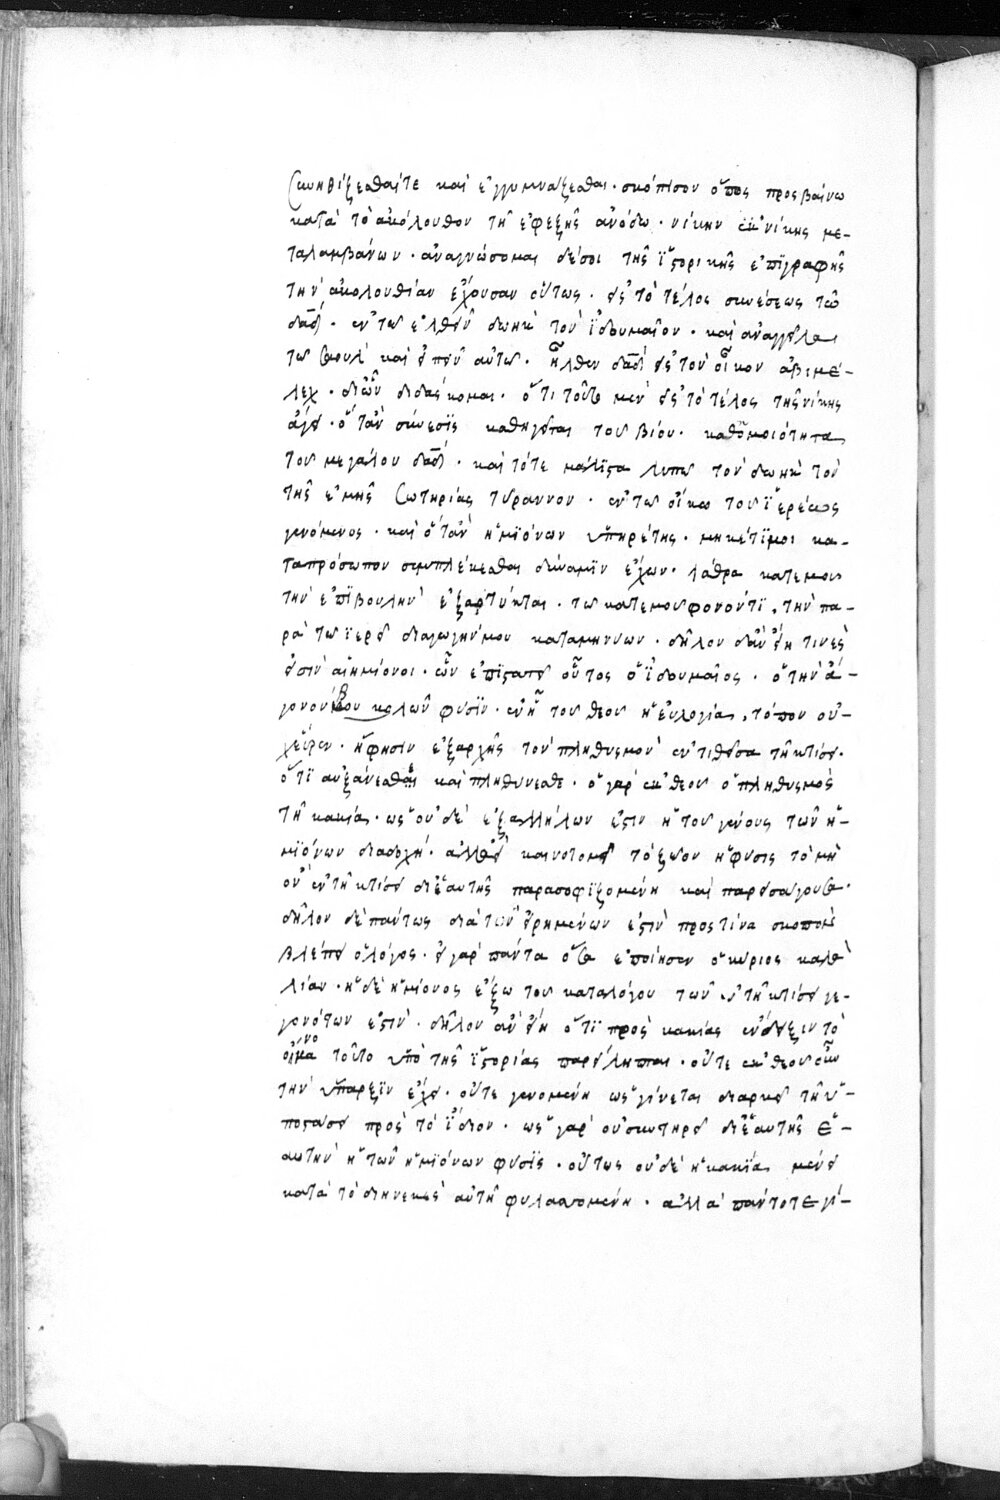 συνηθίζεσθαί τε καὶ ἐγγυμνάζεσθαι · σκόπησον ὅπως προςβαίνω
κατὰ τὸ ἀκόλουθον τῇ ἐφεξῆς ἀνόδω · νίκην ἐκ νίκης με-
ταλαμβάνων · ἀναγνώσομαι δέ σοι τῆς ἱστορικῆς ἐπιγραφῆς
τὴν ἀκολουθίαν ἔχουσαν οὕτως · εἰς τὸ τέλος συνέσεως τῶ
δαδ · ἐν τῶ ἐλθεῖν δωὴκ τὸν ἰδουμαῖον · καὶ ἀναγγεῖλαι
τῶ σαοὺλ καὶ εἰπεῖν αὐτῶ · ἦλθεν δαδ εἰς τὸν οἶκον ἀβιμέ-
λεχ · δι ὧν διδάσκομαι · ὅτι τοῦτο μὲν εἰς τὸ τέλος τῆς νίκης
ἄγει · ὅταν σύνεσις καθηγεῖται τοῦ βίου · καθ ὁμοιότητα
τοῦ μεγάλου δαδ · καὶ τότε μάλιστα λυπῶ τὸν δωὴκ τὸν
τῆς ἐμῆς σωτηρίας τύραννον · ἐν τῶ οἴκω τοῦ ἱερέως
γενόμενος · καὶ ὅταν ἡμιόνων ὑπηρέτης · μηκέτι μοι κα-
ταπρόσωπον συμπλέκεσθαι δύναμιν ἔχων · λάθρα κατ ἐμοῦ
τὴν ἐπιβουλὴν ἐξαρτύηται · τῶ κατ ἐμοῦ φονοῦντι, τὴν πα-
ρὰ τῶ ἱερεῖ διαγωγήν μου καταμηνύων · δῆλον δ ἂν εἴη τινές
εἰσιν αἱ ἡμίονοι · ὧν ἐπιστατεῖ οὗτος ὁ ἰδουμαῖος · ὁ τὴν ἄ-
γονον κωλῶν φύσιν · ἐν ἧ τοῦ θεοῦ ἡ εὐλογία, τόπον οὐ-
χεῦρεν · ἥ φησιν ἐξαρχῆς τὸν πληθυσμὸν ἐντιθεῖσα τῆ κτίσει ·
ὅτι αὐξάνεσθε καὶ πληθύνεσθε · οὐ γὰρ ἐκ θεοῦ ὁ πληθυσμὸς
τῆ κακία · ὡς οὐδὲ ἐξαλλήλων ἐστιν ἡ τοῦ γένους τῶν ἡ-
μιόνων διαδοχή · ἀλλ ἀεὶ καινοτομεῖ τὸ ζῶον ἡ φύσις τὸ μὴ
ὂν ἐν τῆ κτίσει δι ἑαυτῆς παρασοφιζομένη καὶ παρεισάγουσα ·
δῆλον δὲ πάντως διὰ τῶν εἰρημένων ἐστὶν πρός τίνα σκοπὸν
βλέπει ὁ λόγος · εἰ γὰρ πάντα ὅσα ἐποίησεν ὁ κύριος καλὰ
λίαν · ἡ δὲ ἡμίονος ἔξω τοῦ καταλόγου τῶν ἐν τῆ κτίσει γε-
γονότων ἐστὶν · δῆλον ἂν εἴη ὅτι πρὸς κακίας ἔνδειξιν τὸ
ὄνομα τοῦτο ὑπὸ τῆς ἱστορίας παρείληπται · οὔτε ἐκ θεοῦ οὖν
τὴν ὕπαρξιν ἔχει · οὔτε γενομένη ὡς γίνεται διαρκεῖ τῆ ὑ-
ποστάσει πρὸς τὸ ἴδιον · ὡς γὰρ οὐ συντηρεῖ δι ἑαυτῆς ἑ-
αυτὴν ἡ τῶν ἡμιόνων φύσις · οὕτως οὐδὲ ἡ κακία μένει
κατὰ τὸ διηνεκὲς αὐτῆ φυλασσομένη · ἀλλὰ πάντοτε γί-